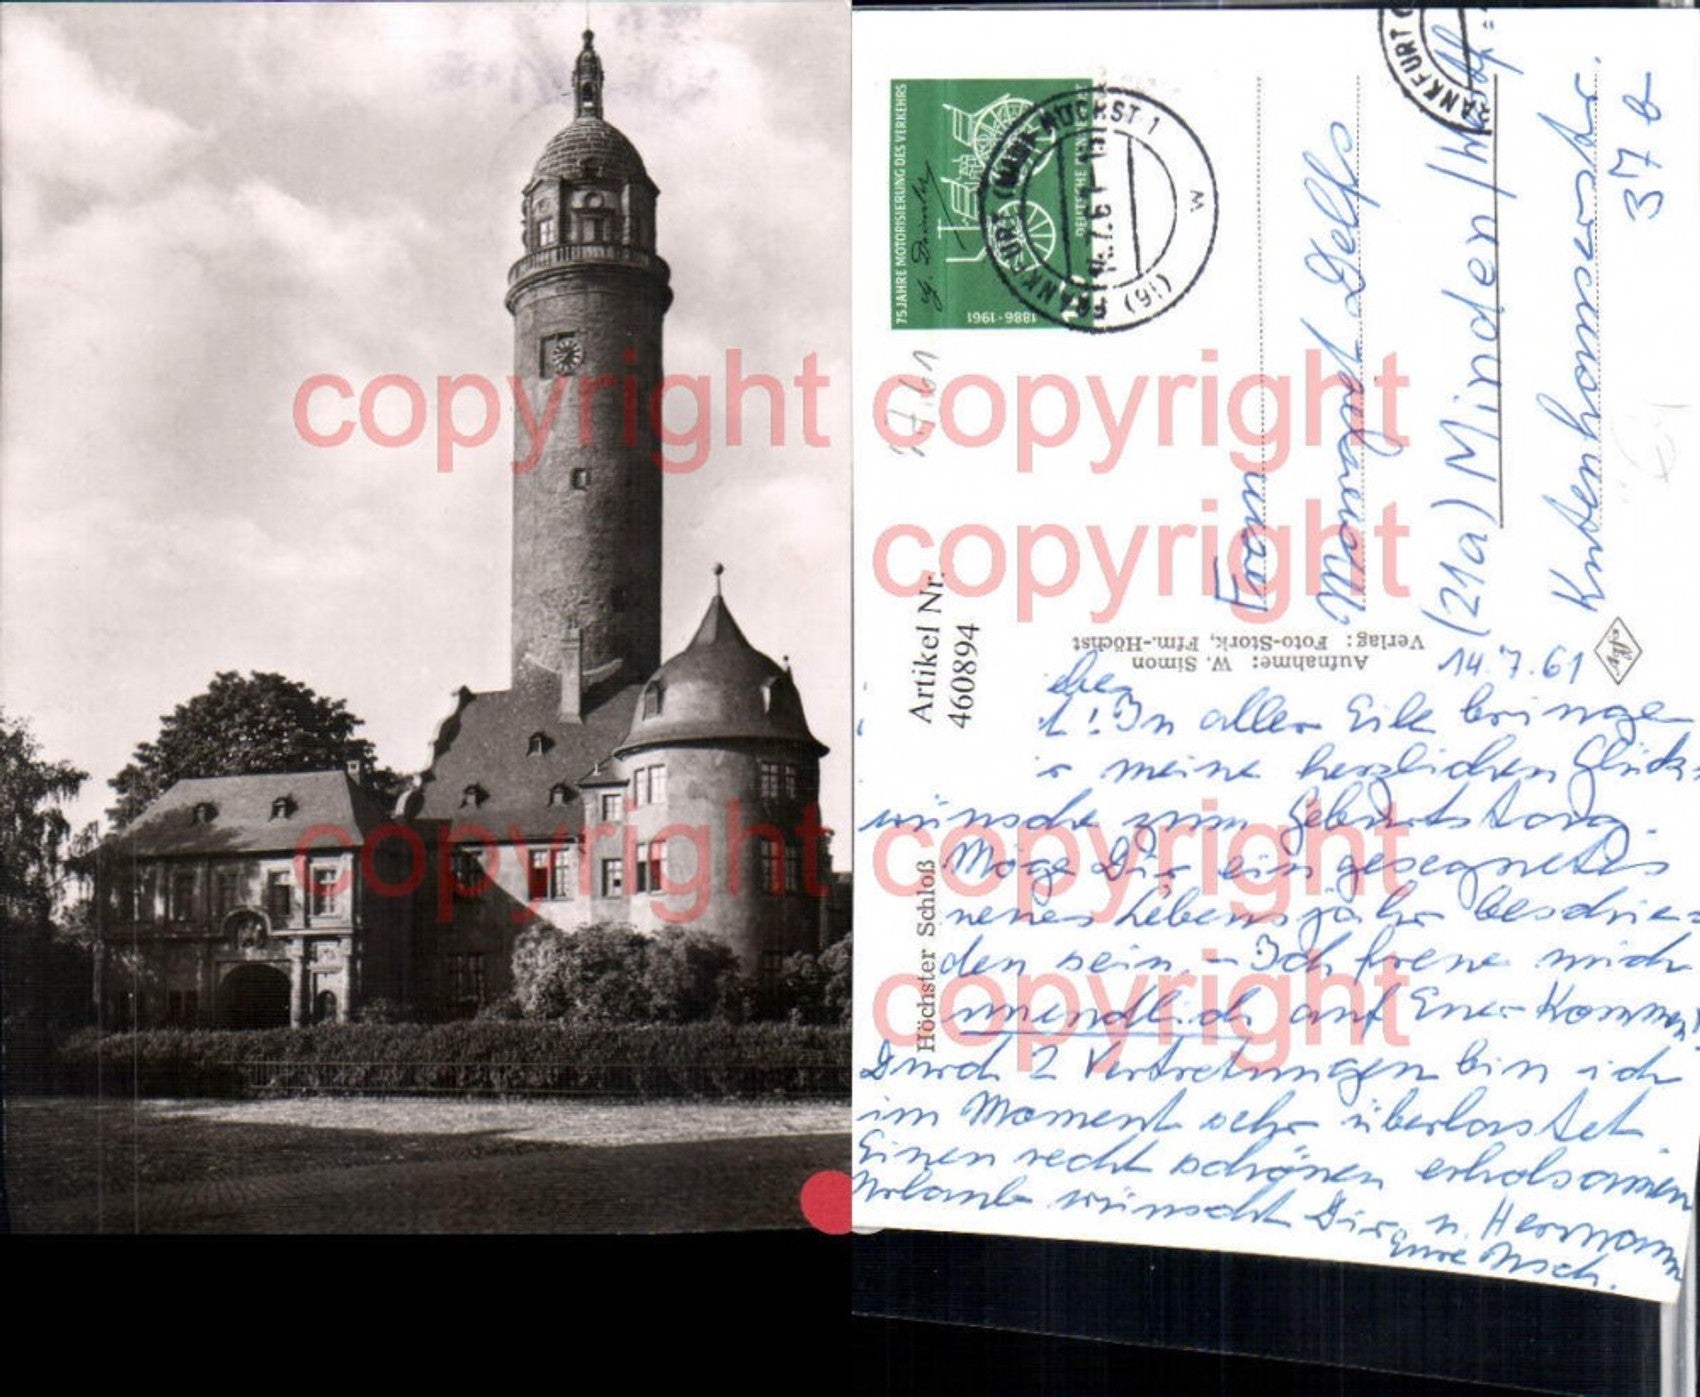 copyright
copyright
copyright
copyright
copyright
copyright
75 JAHRE MOTORISIERUNG DES VERKEHRS
1886-1961
FRANKFURT (MAIN) HÖCHST 1
(16)
w
FRANKFURT
7.61
Artikel Nr.
460894
Höchster Schloß
Aufnahme: W. Simon
Verlag: Foto-Stork, Ffm.-Höchst
Agfa
Frau
Margret Delfs
(21a) Minden / Westf.
Kutenhauserstr.
37 b
14.7.61
! In aller Eile bringe
meine herzlichen Glück-
wünsche zum Geburtstag.
Möge Dir ein gesegnetes
neues Lebensjahr beschie-
den sein. - Ich freue mich
unendlich auf Euer Kommen!
Durch 2 Vertretungen bin ich
im Moment sehr überlastet.
Einen recht schönen erholsamen
Urlaub wünscht Dir u. Hermann
Eure